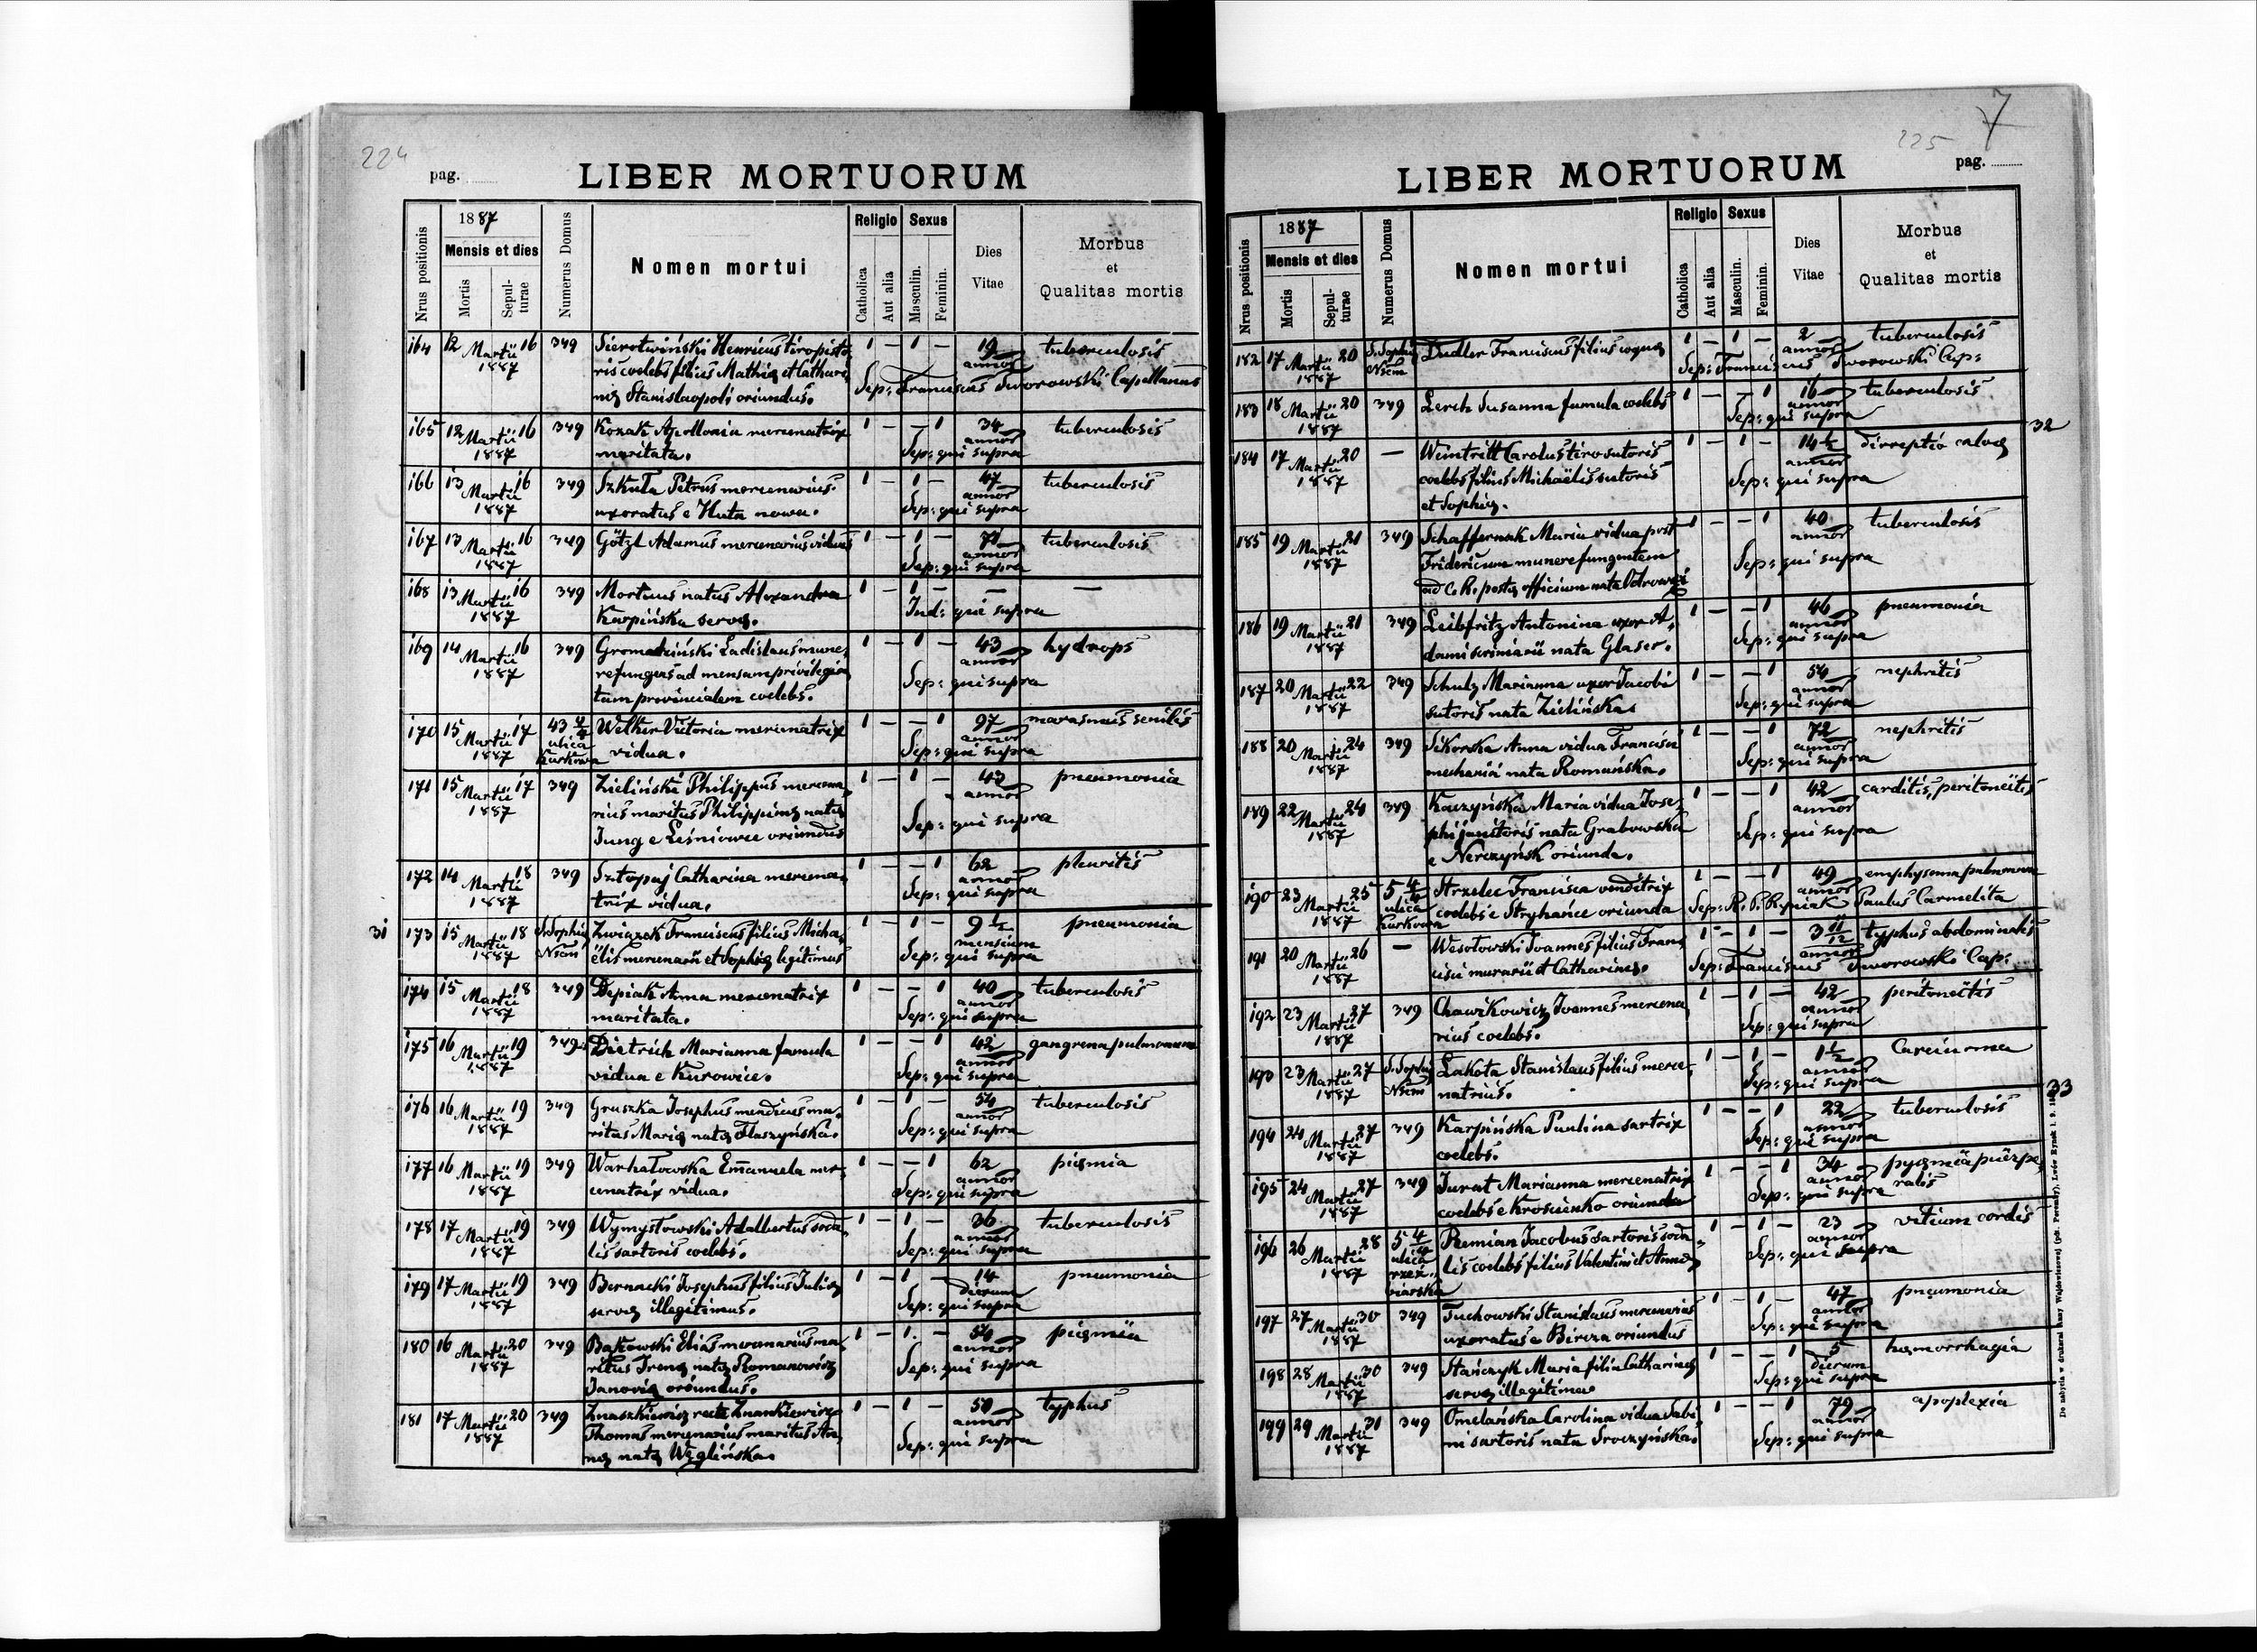 224
pag.
LIBER MORTUORUM
Nrus positionis
1887
Mensis et dies
Mortis
Sepulturae
Numerus Domus
Nomen mortui
Religio
Catholica
Aut alia
Sexus
Masculin.
Feminin.
Dies Vitae
Morbus et Qualitas mortis
164 12 Martii 1887 16 349 Sierotwiński Henricus tiro pisto- 1 – 1 – 19 annor tuberculosis
ris coelebs filius Mathię et Cathari- Sep: Franciscus Dworowski Capellanus
nię Stanislaopoli oriundus.
165 12 Martii 1887 16 349 Kozak Apollonia mercenatrix 1 – – 1 34 annor tuberculosis
maritata. Sep: qui supra
166 13 Martii 1887 16 349 Szkuła Petrus mercenarius 1 – 1 – 47 annor tuberculosis
uxoratus e Huta nowa. Sep: qui supra
167 13 Martii 1887 16 349 Götzl Adamus mercenarius viduus 1 – 1 – 71 annor tuberculosis
Sep: qui supra
168 13 Martii 1887 16 349 Mortuus natus Alexandra 1 – 1 – – –
Karpińska servę. Ind: qui supra
169 14 Martii 1887 16 349 Gromatziński Ladislaus mune- 1 – 1 – 43 annor hydrops
refungens ad mensam privilegia- Sep: qui supra
tam provincialem coelebs.
170 15 Martii 1887 17 43 4/4 ulica Kurkowa Welker Victoria mercenatrix 1 – – 1 97 annor marasmus senilis
vidua. Sep: qui supra
171 15 Martii 1887 17 349 Zieliński Philippus mercena- 1 – 1 – 43 annor pneumonia
rius maritus Philippinę natę Sep: qui supra
Jung e Leśniowce oriundus
172 14 Martii 1887 18 349 Sztopaj Catharina mercena- 1 – – 1 62 annor pleuritis
trix vidua. Sep: qui supra
31
173 15 Martii 1887 18 S. Sophię Nsom Związek Franciscus filius Micha- 1 – 1 – 9 1/2 mensium pneumonia
ëlis mercenarii et Sophię legitimus Sep: qui supra
174 15 Martii 1887 18 349 Depiak Anna mercenatrix 1 – – 1 40 annor tuberculosis
maritata. Sep: qui supra
175 16 Martii 1887 19 349 Dietrich Marianna famula 1 – – 1 42 annor gangrena pulmonum
vidua e Kurowice. Sep: qui supra
176 16 Martii 1887 19 349 Gruszka Josephus mendicus ma- 1 – 1 – 54 annor tuberculosis
ritus Marię natę Flaszyńska. Sep: qui supra
177 16 Martii 1887 19 349 Warhałowska Emanuela mer- 1 – – 1 62 annor pięmia
cenatrix vidua. Sep: qui supra
178 17 Martii 1887 19 349 Wymysłowski Adalbertus soda- 1 – 1 – 36 annor tuberculosis
lis sartoris coelebs. Sep: qui supra
179 17 Martii 1887 19 349 Bernacki Josephus filius Julię 1 – 1 – 14 dierum pneumonia
servę illegitimus. Sep: qui supra
180 16 Martii 1887 20 349 Bąkowski Elias mercenarius ma- 1 – 1 – 54 annor pięmia
ritus Irenę natę Romanowicz Sep: qui supra
Janovię oriundus.
181 17 Martii 1887 20 349 Znaszkiewicz recte Znankiewicz 1 – 1 – 50 annor typhus
Thomas mercenarius maritus An- Sep: qui supra
nę natę Węglińska.
7
225
pag.
LIBER MORTUORUM
Nrus positionis
1887
Mensis et dies
Mortis
Sepulturae
Numerus Domus
Nomen mortui
Religio
Catholica
Aut alia
Sexus
Masculin.
Feminin.
Dies Vitae
Morbus et Qualitas mortis
182 17 Martii 1887 20 S. Sophię Nsom Dudler Franciscus filius coquę 1 – 1 – 2 annor tuberculosis
Sep: Franciscus Dworowski Cap:
183 18 Martii 1887 20 349 Lerch Susanna famula coelebs 1 – – 1 16 annor tuberculosis
Sep: qui supra
32
184 17 Martii 1887 20 – Weintritt Carolus tiro sutoris 1 – 1 – 14 1/2 annor
coelebs filius Michaëlis sutoris Sep: qui supra
et Sophię.
185 19 Martii 1887 21 349 Schaffernak Maria vidua post 1 – – 1 40 annor tuberculosis
Fridericum munere fungentem Sep: qui supra
ad C. R. postę officium nata Ostrowski
186 19 Martii 1887 21 349 Leibfritz Antonina uxor A- 1 – – 1 46 annor pneumonia
dami scriniarii nata Glaser. Sep: qui supra
187 20 Martii 1887 22 349 Schulz Marianna uxor Jacobi 1 – – 1 54 annor nephritis
sutoris nata Zielińska. Sep: qui supra
188 20 Martii 1887 24 349 Sikorska Anna vidua Francisci 1 – – 1 72 annor nephritis
mechanici nata Romańska. Sep: qui supra
189 22 Martii 1887 24 349 Kaczyńska Maria vidua Jose- 1 – – 1 42 annor carditis, peritoneitis
phi janitoris nata Grabowska Sep: qui supra
e Nerczyńsk oriunda.
190 23 Martii 1887 25 5 4/4 ulica Kurkowa Strzelec Francisca venditrix 1 – – 1 49 annor emphysema pulmonum
coelebs e Stryhańce oriunda Sep: R. P. Rypiak Paulus Carmelita
191 20 Martii 1887 26 – Wesołowski Joannes filius Fran- 1 – 1 – 3 11/12 annor typhus abdominalis
cisci murarii et Catharinę. Sep: Franciscus Dworowski Cap:
192 23 Martii 1887 27 349 Chawikowicz Joannes mercena- 1 – 1 – 42 annor peritoneitis
rius coelebs. Sep: qui supra
193 23 Martii 1887 27 S. Sophię Nsom Lakota Stanislaus filius merce- 1 – 1 – 1 1/2 annor Carcinoma
natrius. Sep: qui supra
33
194 24 Martii 1887 27 349 Karpińska Paulina sartrix 1 – – 1 22 annor tuberculosis
coelebs. Sep: qui supra
195 24 Martii 1887 27 349 Jurat Marianna mercenatrix 1 – – 1 34 annor pyęmia püerpe-
coelebs e Krościenko oriunda Sep: qui supra ralis
196 26 Martii 1887 28 5 4/4 ulica rzeź- biarska Remian Jacobus sartoris soda- 1 – 1 – 23 annor vitium cordis
lis coelebs filius Valentini et Annę Sep: qui supra
197 27 Martii 1887 30 349 Tuchowski Stanislaus mercenarius 1 – 1 – 47 annor pneumonia
uxoratus e Bircza oriundus Sep: qui supra
198 28 Martii 1887 30 349 Stańczyk Maria filia Catharinę 1 – – 1 5 dierum hæmorrhagia
servę illegitima Sep: qui supra
199 29 Martii 1887 31 349 Omelańska Carolina vidua Sabi- 1 – – 1 79 annor apoplexia
ni sartoris nata Sroczyńska. Sep: qui supra
De nabycia w drukarni Anny Wajdowiczowej (pół. Poremby), Lwów Rynek l. 9.